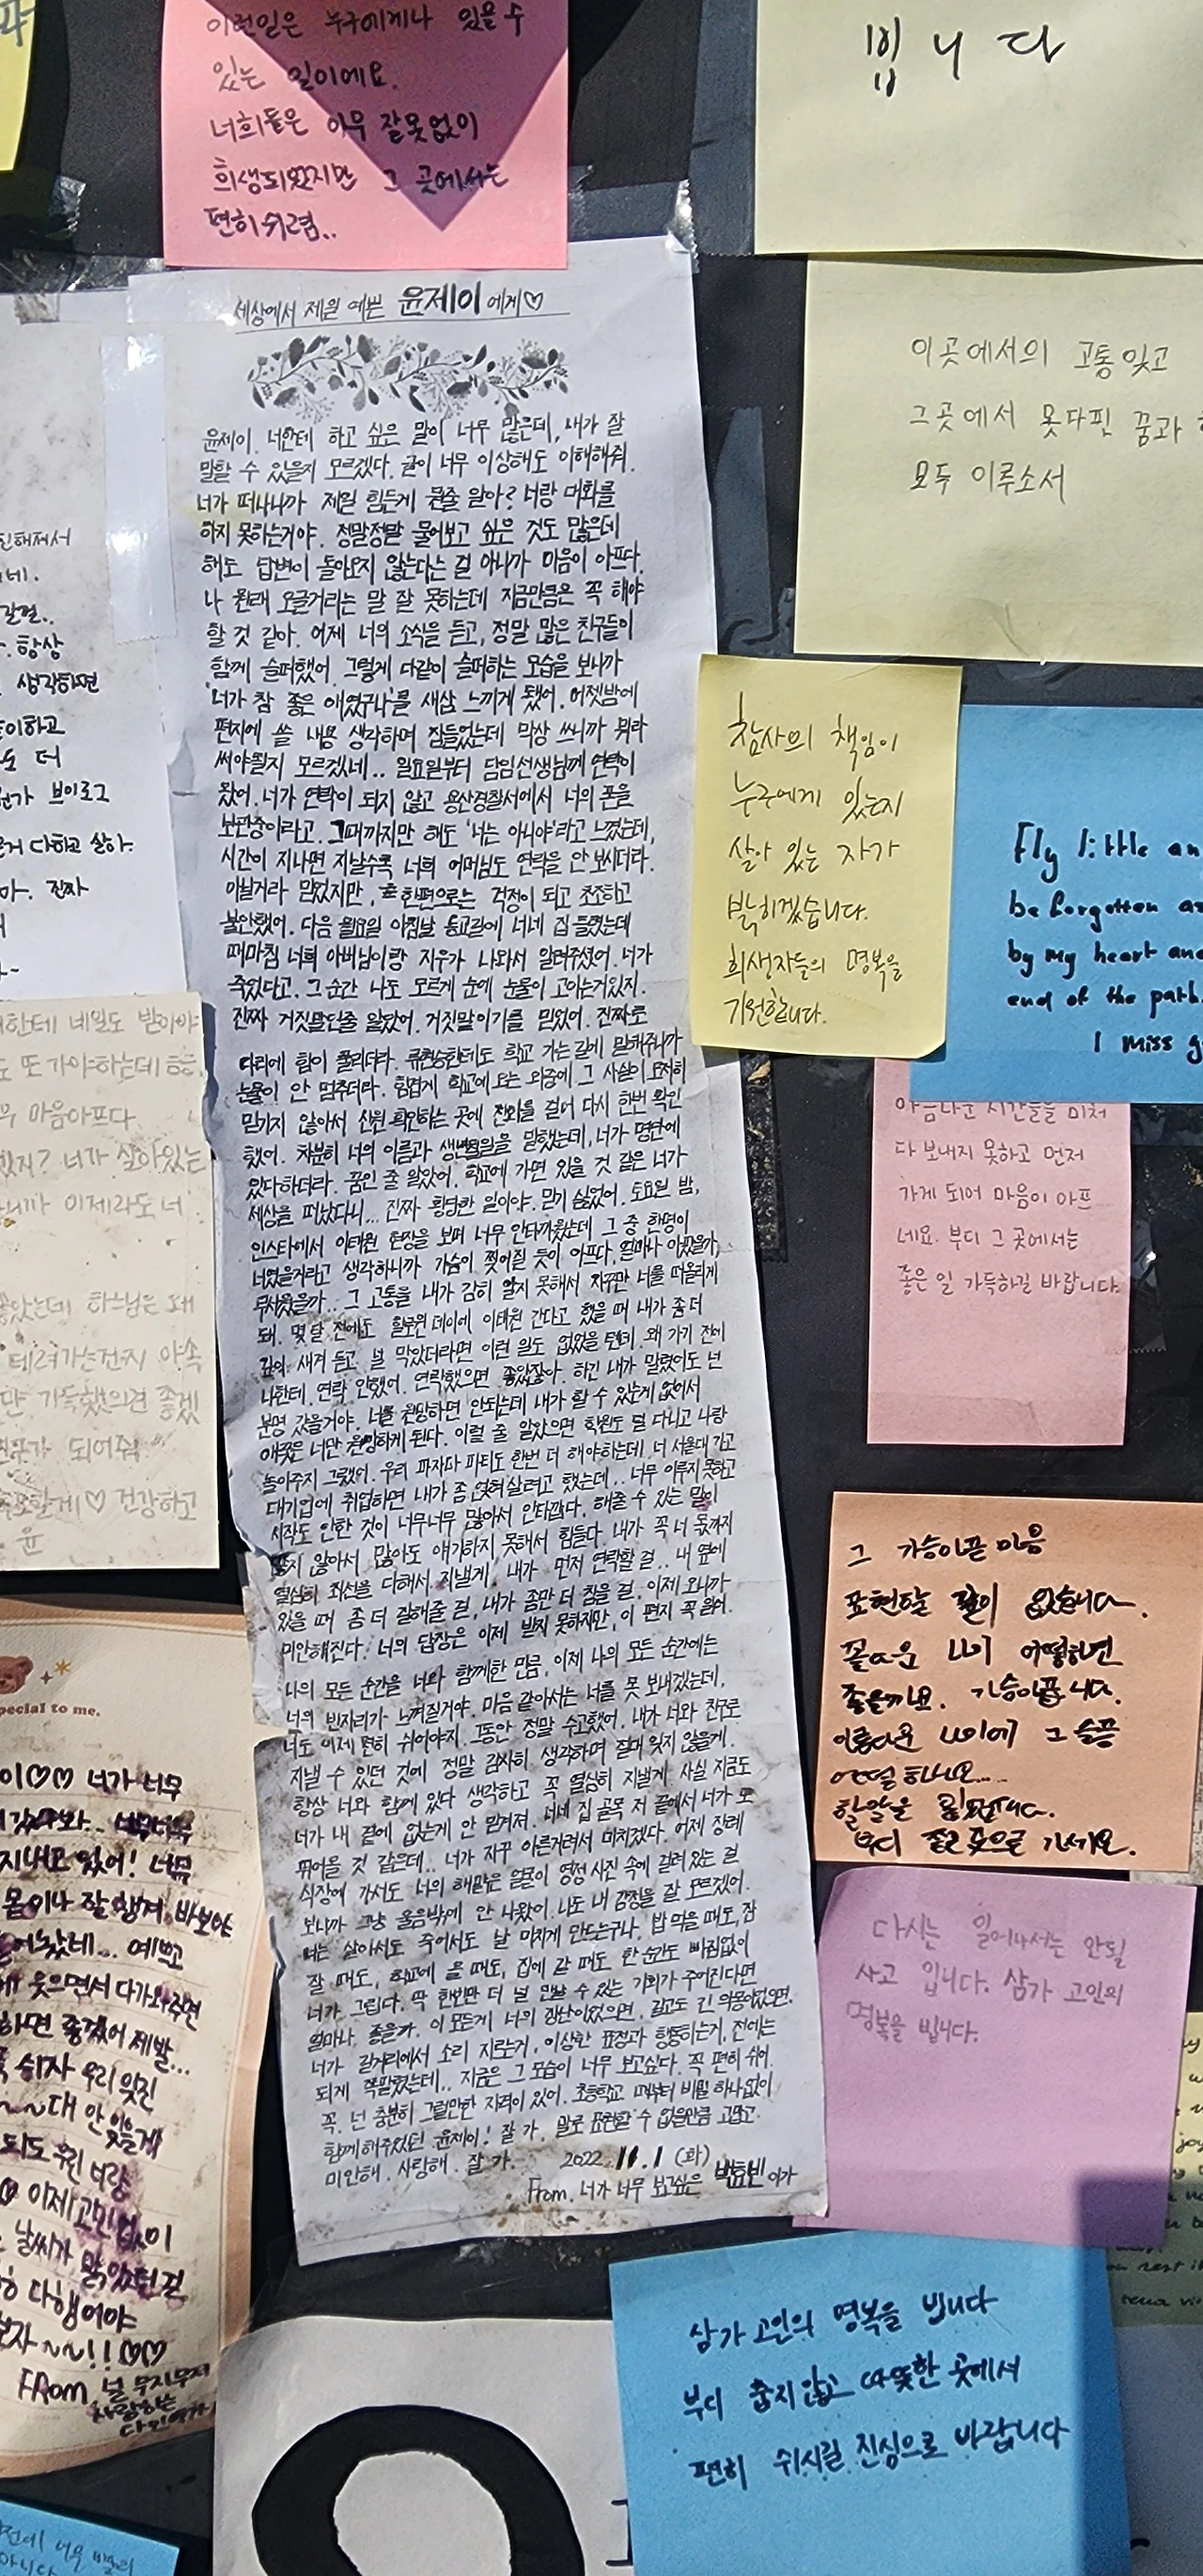 이런일은 누구에게나 있을 수
있는 일이에요.
너희들은 아무 잘못없이
희생되었지만 그 곳에서는
편히 쉬렴..
빕니다
세상에서 제일 예쁜 윤제이에게♡
윤제이. 너한테 하고 싶은 말이 너무 많은데, 내가 잘
말할 수 있을지 모르겠다. 글이 너무 이상해도 이해해줘.
너가 떠나니까 제일 힘든게 뭔줄 알아? 너랑 대화를
하지 못하는거야. 정말정말 물어보고 싶은 것도 많은데
해도 답변이 돌아오지 않는다는 걸 아니까 마음이 아프다.
나 원래 오글거리는 말 잘 못하는데 지금만큼은 꼭 해야
할 것 같아. 어제 너의 소식을 듣고, 정말 많은 친구들이
함께 슬퍼했어. 그렇게 다같이 슬퍼하는 모습을 보니까
'너가 참 좋은 애였구나'를 새삼 느끼게 됐어. 어젯밤에
편지에 쓸 내용 생각하며 잠들었는데 막상 쓰니까 뭐라
써야될지 모르겠네.. 일요일부터 담임선생님께 연락이
왔어. 너가 연락이 되지 않고 용산경찰서에서 너의 폰을
보관중이라고. 그때까지만 해도 '너는 아니야'라고 느꼈는데,
시간이 지나면 지날수록 너희 어머님도 연락을 안 보시더라.
아닐거라 믿었지만, 한편으로는 걱정이 되고 초조하고
불안했어. 다음 월요일 아침날 등교길에 너네 집 들렸는데
때마침 너희 아버님이랑 지우가 나와서 알려주셨어. 너가
죽었다고. 그 순간 나도 모르게 눈에 눈물이 고이는거있지.
진짜 거짓말인줄 알았어. 거짓말이기를 믿었어. 진짜로
다리에 힘이 풀리더라. 학교 가는길에 말해주니까
눈물이 안 멈추더라. 힘겹게 학교에 오는 와중에 그 사실이 도저히
믿기지 않아서 신원 확인하는 곳에 전화를 걸어 다시 한번 확인
했어. 차분히 너의 이름과 생년월일을 말했는데, 너가 명단에
있다하더라. 꿈인 줄 알았어. 학교에 가면 있을 것 같은 너가
세상을 떠났다니... 진짜 황당한 일이야. 믿기 싫었어. 토요일 밤,
인스타에서 이태원 현장을 보며 너무 안타까웠는데 그 중 한명이
너였을거라고 생각하니까 가슴이 찢어질 듯이 아프다. 얼마나 아팠을까,
무서웠을까... 그 고통을 내가 감히 알지 못해서 자꾸만 너를 떠올리게
돼. 몇 달 전에도 할로윈 데이에 이태원 간다고 했을 때 내가 좀 더
새겨 듣고 널 막았더라면 이런 일도 없었을 텐데. 왜 가기 전에
나한테 연락 안했어. 연락했으면 좋았잖아. 하긴 내가 말렸어도 넌
분명 갔을거야. 너를 원망하면 안되는데 내가 할 수 있는게 없어서
애꿎은 너만 원망하게 된다. 이럴 줄 알았으면 학원도 덜 다니고 나랑
놀아주지 그랬어. 우리 파자마 파티도 한번 더 해야하는데. 너 서울대 가고
대기업에 취업하면 내가 좀 얹혀 살려고 했는데.. 너무 이루지 못하고
시작도 안한 것이 너무너무 많아서 안타깝다. 해줄 수 있는 말이
많지 않아서 많이도 얘기하지 못해서 힘들다. 내가 꼭 너 몫까지
열심히 최선을 다해서 지낼게. 내가 먼저 연락할 걸.. 내 옆에
있을 때 좀 더 잘해줄 걸, 내가 좀만 더 참을 걸. 이제 오니까
미안해진다. 너의 답장은 이제 받지 못하지만, 이 편지 꼭 읽어.
나의 모든 순간을 너와 함께한 만큼, 이제 나의 모든 순간에는
너의 빈자리가 느껴질거야. 마음 같아서는 너를 못 보내겠는데,
너도 이제 편히 쉬어야지. 그동안 정말 수고했어. 내가 너와 친구로
지낼 수 있던 것에 정말 감사히 생각하며 절대 잊지 않을게.
항상 너와 함께 있다 생각하고 꼭 열심히 지낼게. 사실 지금도
너가 내 곁에 없는게 안 믿겨져. 너네 집 골목 저 끝에서 너가 또
뛰어올 것 같은데.. 너가 자꾸 아른거려서 미치겠다. 어제 장례
식장에 가서도 너의 해맑은 얼굴이 영정 사진 속에 걸려 있는 걸
보니까 그냥 울음밖에 안 나왔어. 나도 내 감정을 잘 모르겠어.
너는 살아서도 죽어서도 날 미치게 만드는구나. 밥 먹을 때도, 잠
잘 때도, 학교에 올 때도, 집에 갈 때도 한 순간도 빠짐없이
너가 그립다. 딱 한번만 더 널 만날 수 있는 기회가 주어진다면
얼마나 좋을까. 이 모든게 너의 장난이었으면. 길고도 긴 악몽이었으면.
너가 길거리에서 소리 지르는거, 이상한 표정과 행동하는거, 전에는
되게 쪽팔렸는데.. 지금은 그 모습이 너무 보고싶다. 꼭 편히 쉬어.
꼭. 넌 충분히 그럴만한 자격이 있어. 초등학교 때부터 비밀 하나없이
함께 해주었던 윤제이! 잘 가. 말로 표현할 수 없을만큼 고맙고.
미안해. 사랑해. 잘 가. 2022. 11. 1 (화)
From. 너가 너무 보고싶은 박효빈이가
이곳에서의 고통 잊고
그곳에서 못다핀 꿈과
모두 이루소서
참사의 책임이
누구에게 있는지
살아 있는 자가
밝히겠습니다.
희생자들의 명복을
기원합니다.
Fly little an
be forgotten as
by my heart and
end of the path.
I miss y
아름다운 시간들을 미처
다 보내지 못하고 먼저
가게 되어 마음이 아프
네요. 부디 그 곳에서는
좋은 일 가득하길 바랍니다.
그 가슴아픈 마음
표현할 길이 없습니다.
꽃다운 나이 어떻하면
좋을까요. 가슴아픕니다.
아름다운 나이에 그 슬픔
어떨 하나요....
할말을 잃었습니다.
부디 좋은 곳으로 가세요.
다시는 일어나서는 안될
사고 입니다. 삼가 고인의
명복을 빕니다.
삼가 고인의 명복을 빕니다
부디 춥지않고 따뜻한 곳에서
편히 쉬시길 진심으로 바랍니다
항상
생각하면
더
브이로그
다하고 살아.
진짜
한테 내일도 받아야
또 가야하는데
마음아프다
너가 살아있는
니까 이제라도 너
하느님은 왜
데려가는건지 야속
가득했으면 좋겠
가 되어줘
♡ 건강하고
윤
pecial to me.
이♡♡ 너가 너무
지내고 있어! 너무
몸이나 잘 챙겨. 바보야
예쁘고
웃으면서 다가와주면
하면 좋겠어 제발...
쉬자 우리 잊진
~~대 안 잊을게
이제 고민 없이
날씨가 맑았던 걸
다행이야
보자 ~~!! ♡♡
From. 널 무지무지
사랑하는